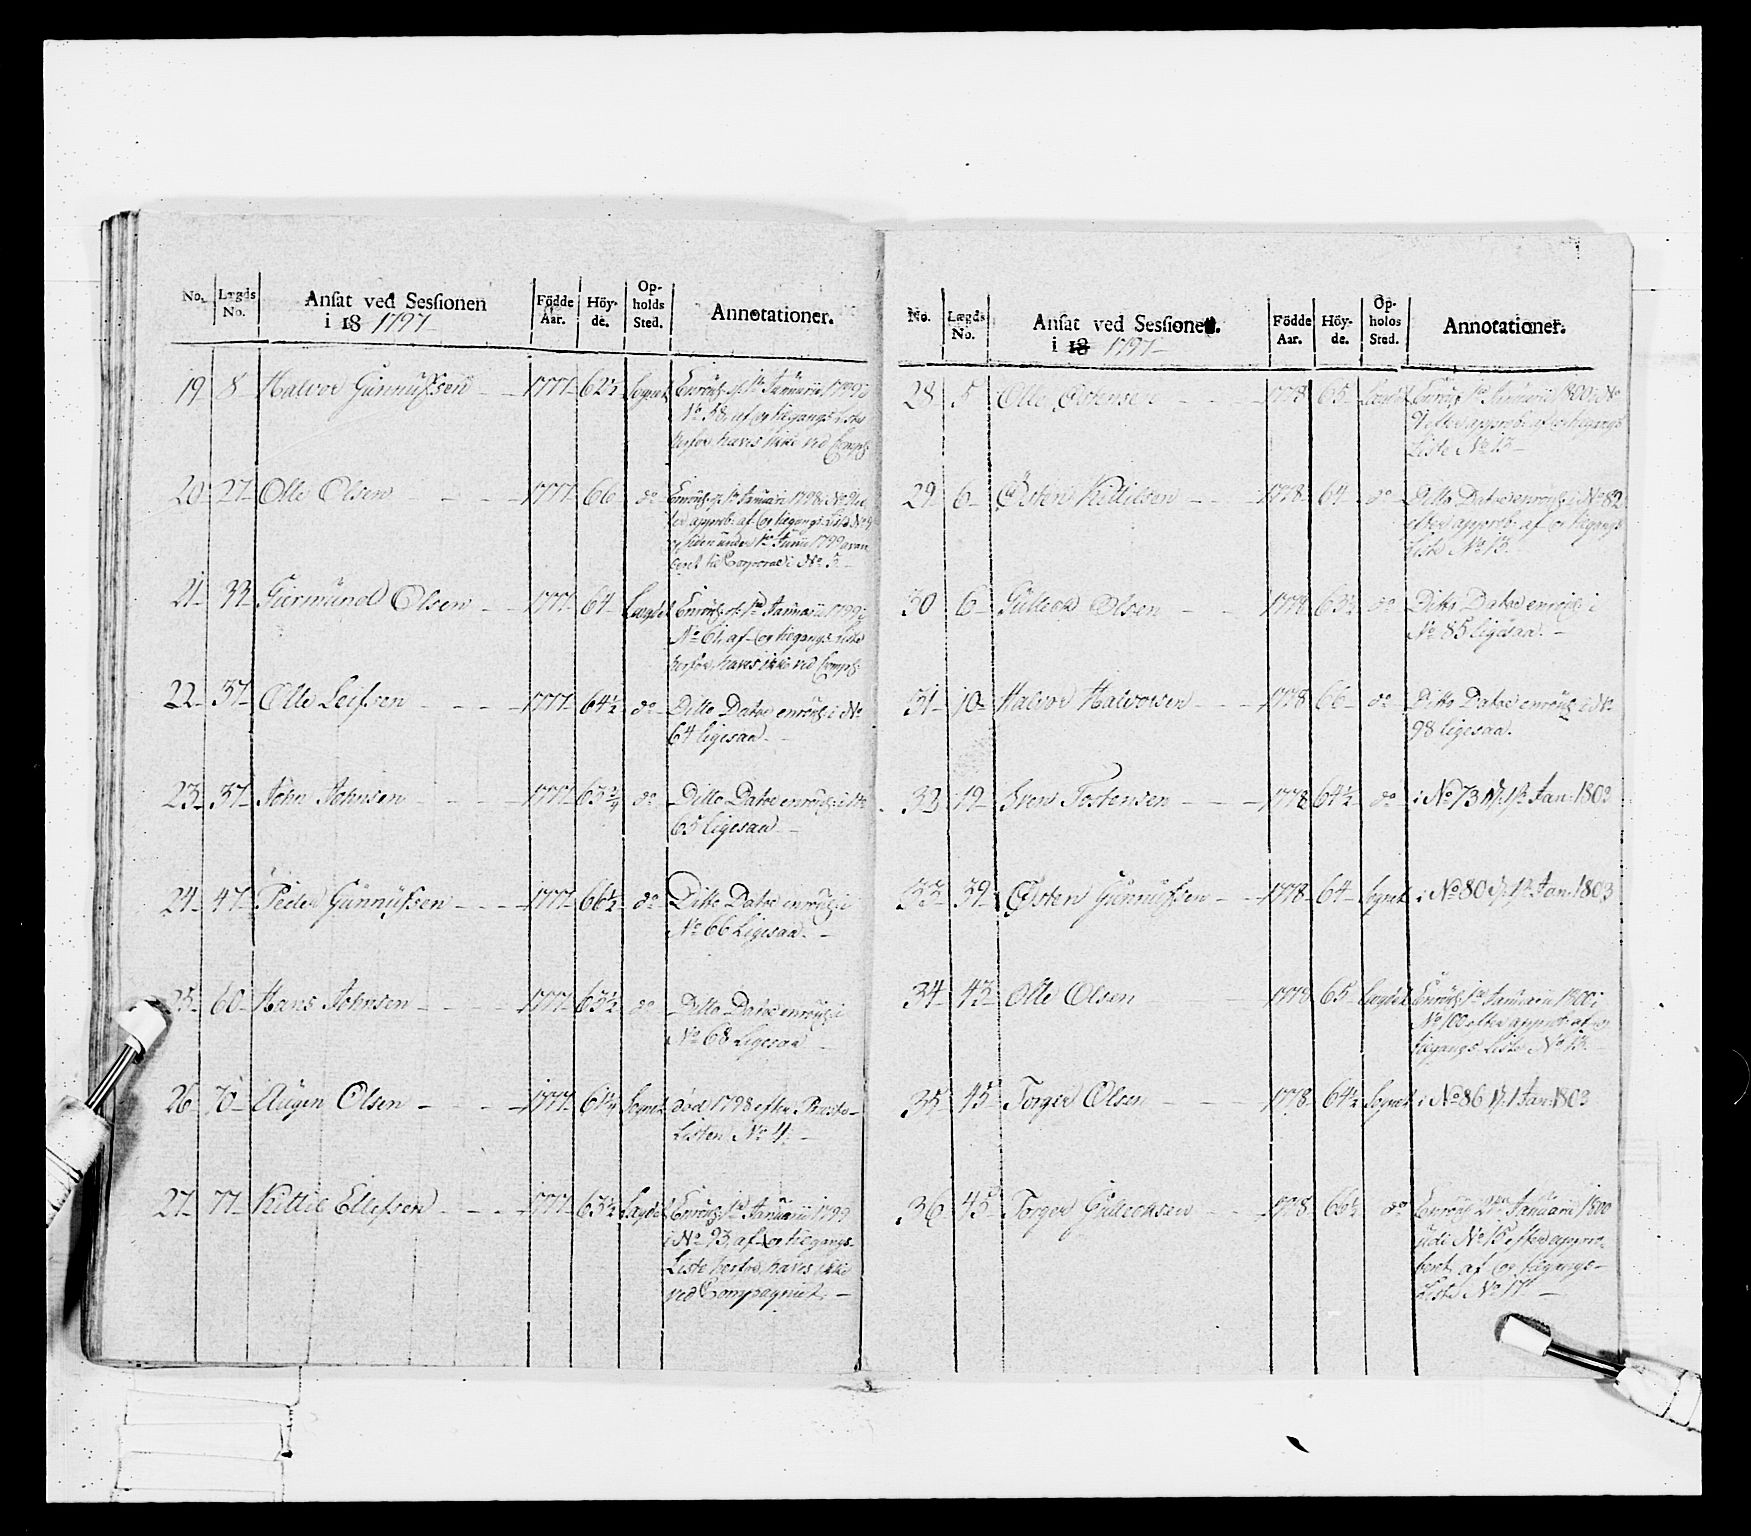 No. Lægds No. Ansat ved Sessionen i 18 1797 Födde Aar. Höyde. Opholds Sted. Annotationer.
19 8 Halvor Gunnufsen 1777 62½ Sognet Enroul. p. 1te Januarii 1799 i
No 58, af Compl.
herfor haves ikke ved Compl.
20 27 Olle Olsen 1777 66 do Enroul. p. 1te Januari 1798 i No
approb. af tilgangs Liste No 9
siden under 1te Junii 1799 avan-
ceret til Corporal i No 5.
21 33 Giermund Olsen 1777 64 Lægdet Enroul. p. 1te Januarii 1799 i
No 61, af tilgangs Liste
herfor, haves ikke ved Compl.
22 37 Olle Leifsen 1777 64½ do Ditto Dato enroul. i No
64 ligesaa.
23 37 John Johnsen 1777 63¾ do Ditto Dato enroul. i No
65 ligesaa.
24 47 Peder Gunnufsen 1777 66½ do Ditto Dato enroul. i
No 66 Ligesaa.
25 60 Hans Johnsen 1777 65½ do Ditto Dato enroul. i
No 68 Ligesaa
26 70 Augen Olsen 1777 61¼ Sognet død 1798 efter Proste-
Listen No 4.
27 77 Kittil Ellefsen 1777 63½ Lægdet Enroul. 1te Januarii 1799
i No 93, af tilgangs-
Liste herfor, haves ikke
ved Compagniet.
No. Lægds No. Ansat ved Sessionen. i 18 1797 Födde Aar. Höyde. Opholds Sted. Annotationer.
28 5 Olle Østensen 1778 65 Lægdet Enroul. 1te Januarii 1800 i No
efter approb. af tilgangs
Liste No 13
29 6 Østen Kittilsen 1778 64 do Ditto Dato enroul. i No 82
efter approb. af tilgangs
Liste No 13.
30 6 Gulleck Olsen 1779 63½ do Ditto Dato enroul. i
No 85 ligesaa.
31 10 Halvor Halvorsen 1778 66 do Ditto Dato enroul. i No
98 ligesaa.
32 19 Sven Tostensen 1778 64½ do i No 73 p. 1te Jan. 1803
33 39 Østen Gunnufsen 1778 64 Sognet i No 80 p. 1te Jan. 1803
34 43 Olle Olsen 1778 65 Lægdet Enroul. 1te Januarii 1800 i
No 100 efter approb. af
tilgangs Liste No 13.
35 45 Torger Olsen 1778 64½ Sognet i No 86 p. 1 Jan. 1803
36 45 Torger Gulleccksen 1778 66½ do Enroul. Januarii 1800
udi No 15 efter appro-
beret af tilgangs-
Liste No 17